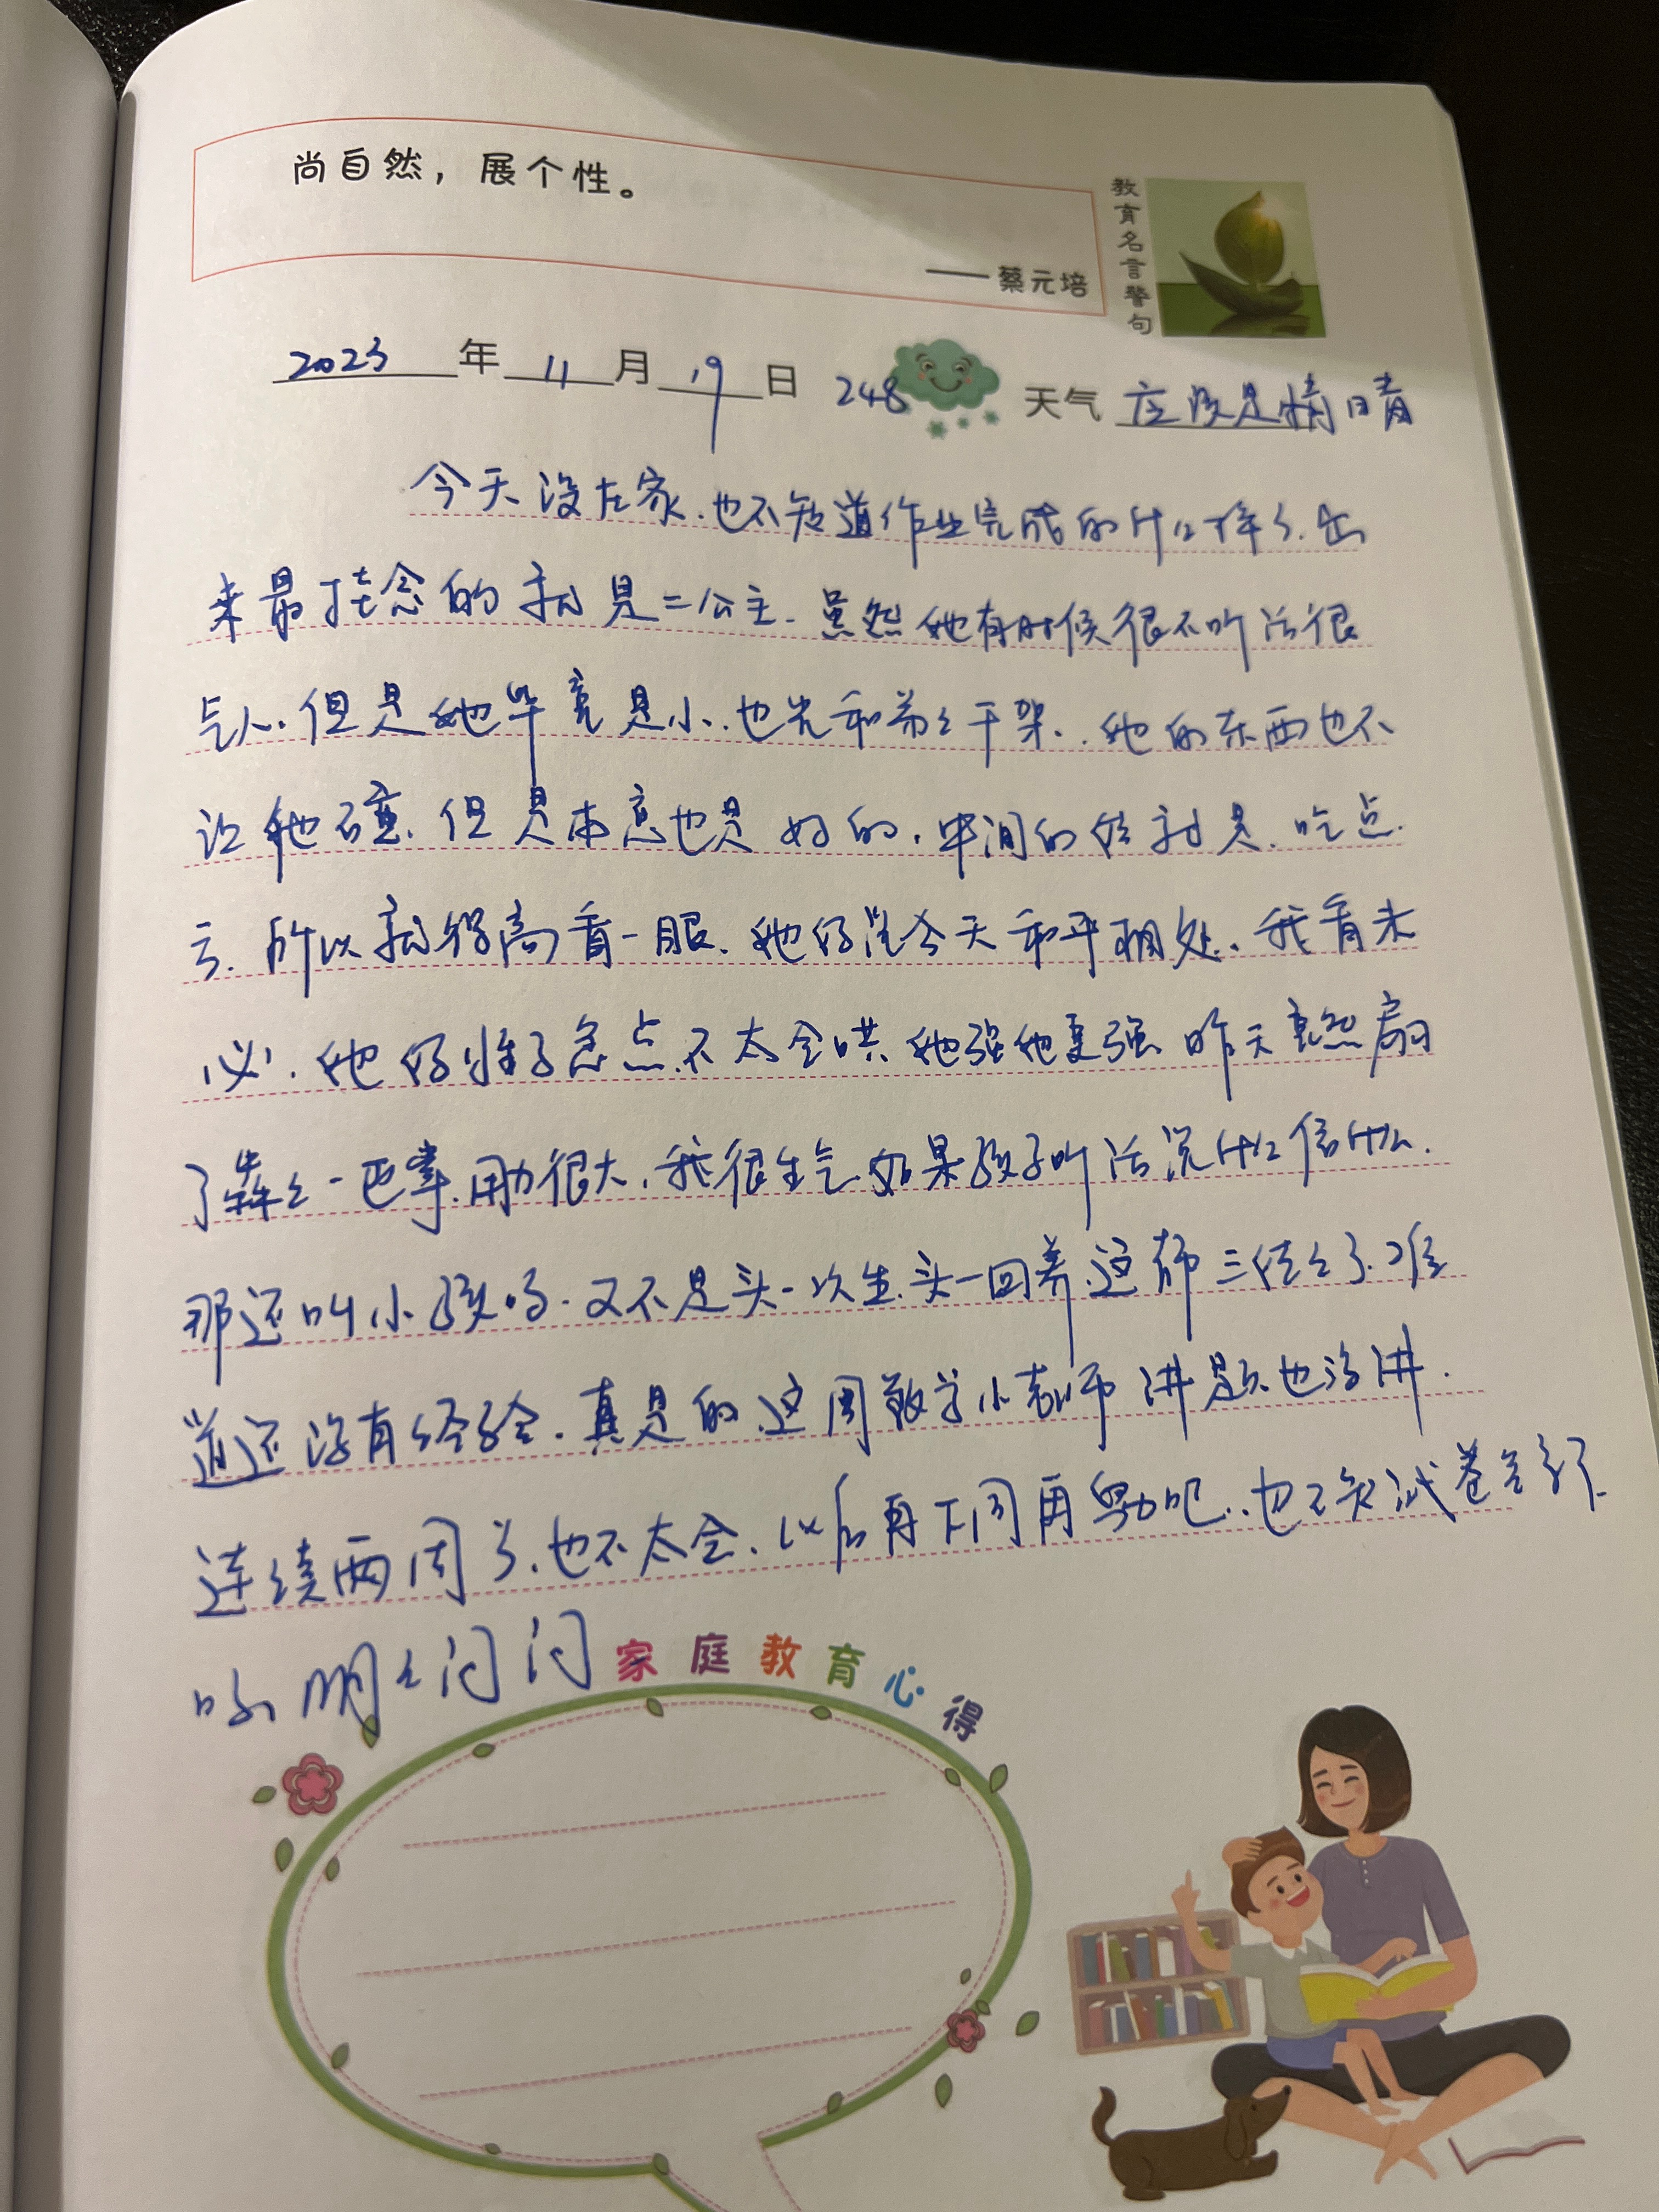 尚自然，展个性。
——蔡元培
教育名言警句
2023年11月19日 248 天气 应该是情晴
今天没在家.也不知道作业完成的什么样了.出
来最挂念的就是二公主.虽然她有时候很不听话很
气人.但是她毕竟是小.也光和弟弟干架.她的东西也不
让他碰.但是本意也是好的.中间的位就是.吃点
亏.所以就得高看一眼.她爸说今天和平相处.我看未
必.她爸性子急点.不太会哄.她强他更强.昨天竟然扇
了犇犇一巴掌.用力很大.我很生气.如果孩子听话说什么信什么.
那还叫小孩吗.又不是头一次生.头一回养.这都三个了.难
道还没有经验.真是的.这周数学小老师讲题也没讲.
连续两周了.也不太会.以后再下周再努力吧.也不知试卷
明明问问
家庭教育心得